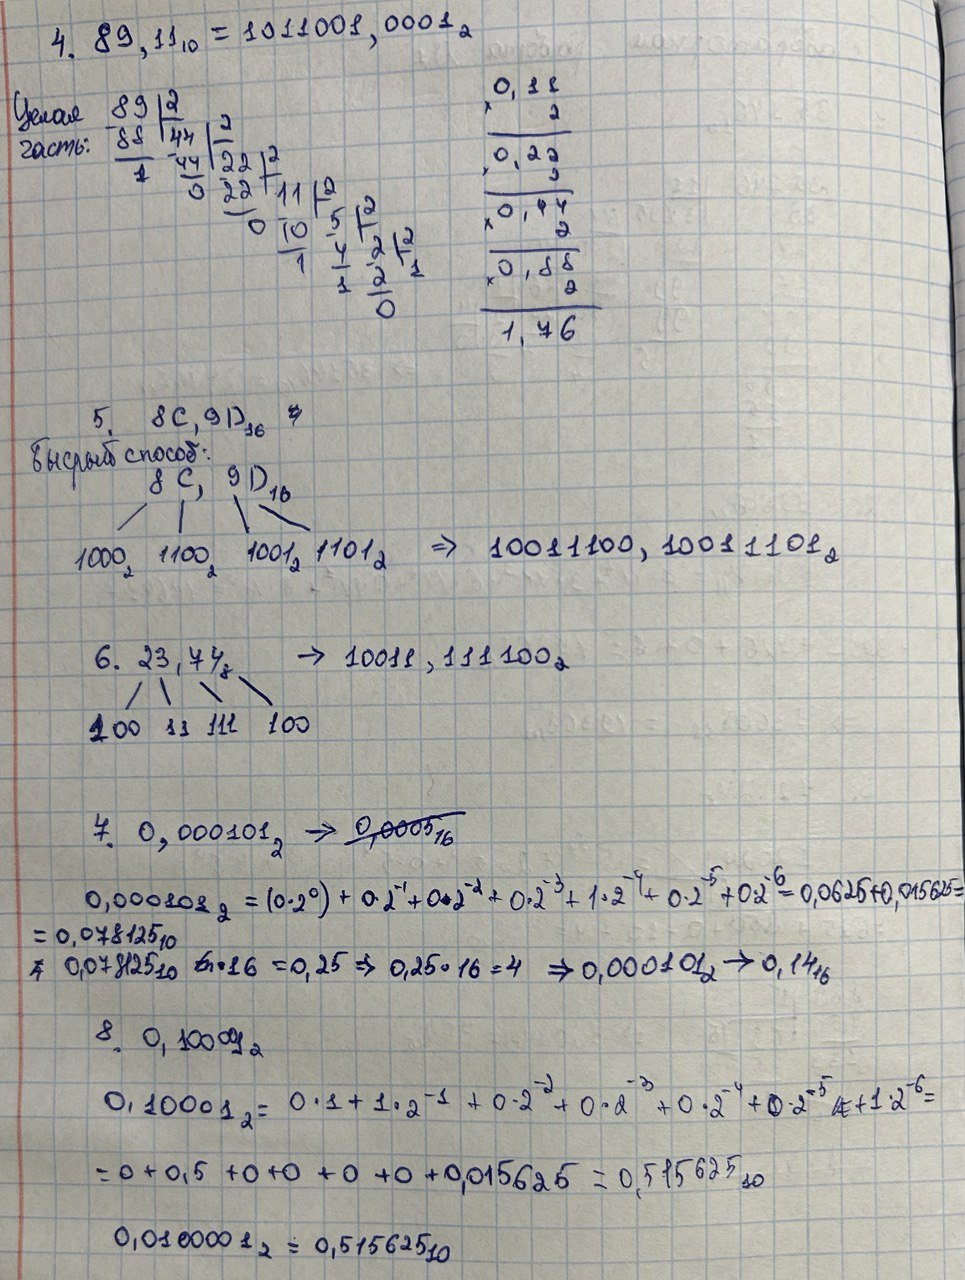 4. 89,11₁₀ = 1011001,0001₂
Целая
часть:
89 |2
88 44 |2
1 44 22 |2
0 22 11 |2
0 10 5 |2
1 4 2 |2
1 2 1
0
0,11
× 2
0,22
× 2
0,44
× 2
0,88
× 2
1,76
5. 8C,9D₁₆
Быстрый способ:
8C, 9D₁₆
1000₂ 1100₂ 1001₂ 1101₂ ⇒ 10011100,10011101₂
6. 23,74₈ → 10011,111100₂
100 11 111 100
7. 0,000101₂ → 0,0005₁₆
0,000101₂ = (0·2⁰) + 0·2⁻¹ + 0·2⁻² + 0·2⁻³ + 1·2⁻⁴ + 0·2⁻⁵ + 0·2⁻⁶ = 0,0625+0,015625=
= 0,078125₁₀
0,078125₁₀ ·16 = 0,25 ⇒ 0,25·16 = 4 ⇒ 0,000101₂ → 0,14₁₆
8. 0,10001₂
0,10001₂ = 0·1 + 1·2⁻¹ + 0·2⁻² + 0·2⁻³ + 0·2⁻⁴ + 0·2⁻⁵ + 1·2⁻⁶ =
= 0 + 0,5 + 0+0 + 0 + 0 + 0,015625 = 0,515625₁₀
0,0100001₂ = 0,515625₁₀